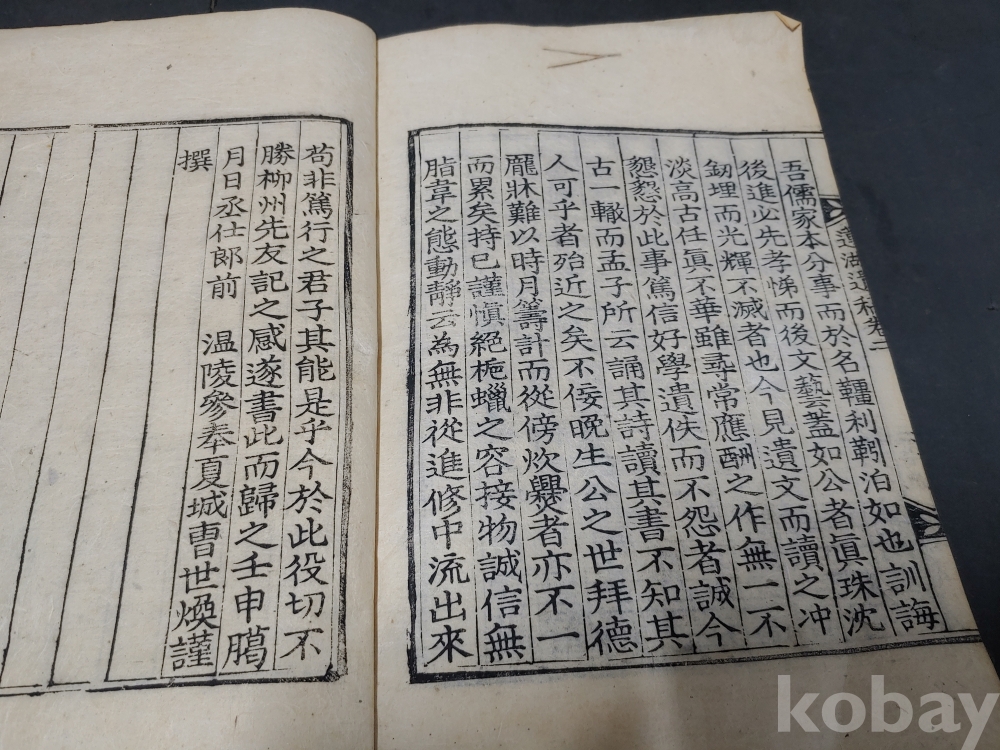 吾儒家本分事而於名韁利鞹泊如也訓誨
後進必先孝悌而後文藝蓋如公者眞珠沈
埋而光輝不滅者也今見遺文而讀之冲
淡高古任眞不華雖尋常應酬之作無一不
懇懇於此事篤信好學遺佚而不怨者誠今
古一轍而孟子所云誦其詩讀其書不知其
人可乎者殆近之矣不佞晩生公之世拜德
龐牀難以時月籌計而從傍炊爨者亦不一
而累矣持己謹愼絕梔蠟之容接物誠信無
脂韋之態動靜云為無非從進修中流出來
苟非篤行之君子其能是乎今於此役切不
勝柳州先友記之感遂書此而歸之壬申臈
月日丞仕郎前 温陵參奉夏城曺世煥謹
撰
遺稿卷二
kobay